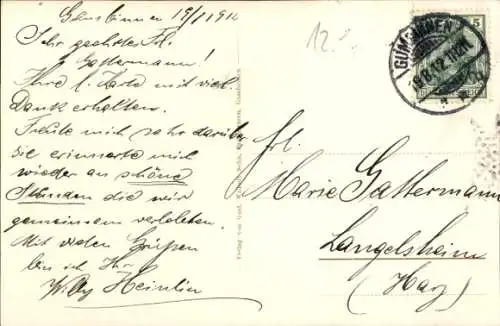 Gumbinnen 19/11 1912
Sehr geehrtes Frl.
Gattermann!
Ihre l. Karte mit viel.
Dank erhalten.
Freute mich sehr darüber
sie erinnerte mich
wieder an schöne
Stunden die wir
gemeinsam verlebten.
Mit vielen Grüßen
bin ich Ihr
Willy Heinlin
Frl.
Marie Gattermann
Langelsheim
(Harz)
12.
GUMBINNEN
5